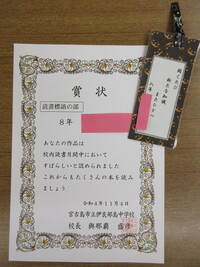 賞状
読書標語の部
8年
あなたの作品は
校内読書月間中において
すばらしいと認められました
これからもたくさんの本を読み
ましょう
令和4年11月4日
宮古島市立伊良部島中学校
校長 與那覇 盛彦
開くたび
新たな知識